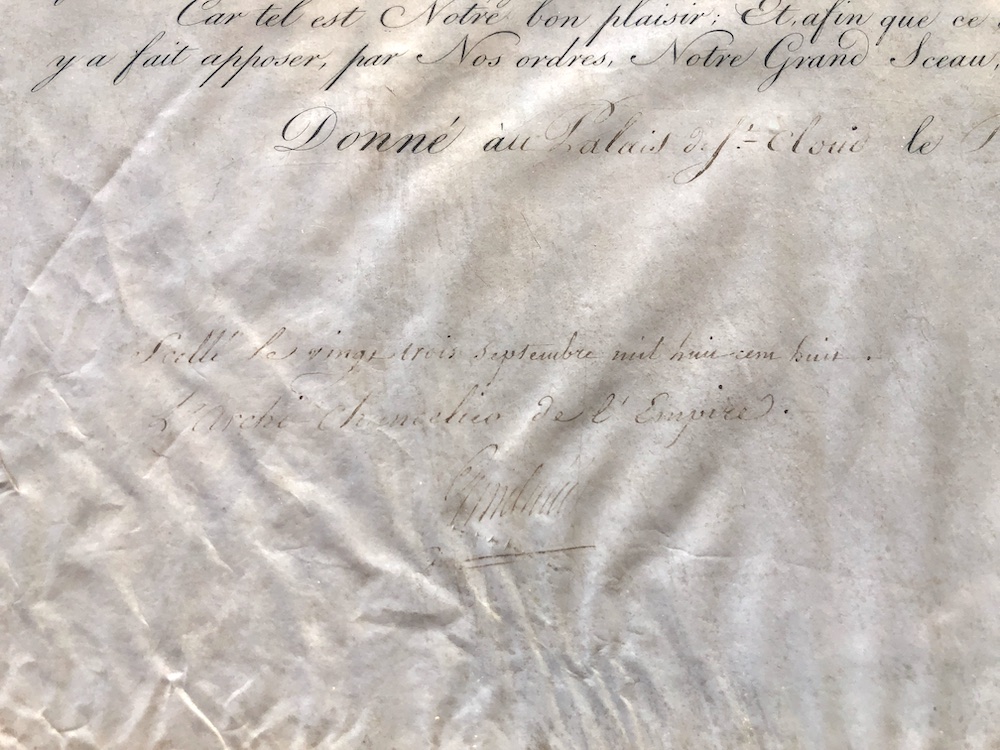 Car tel est Notre bon plaisir; Et, afin que ce
y a fait apposer, par Nos ordres, Notre Grand Sceau,
Donné au Palais de St. Cloud le
Scellé le vingt trois septembre mil huit cent huit.
L'archi Chancelier de l'Empire.